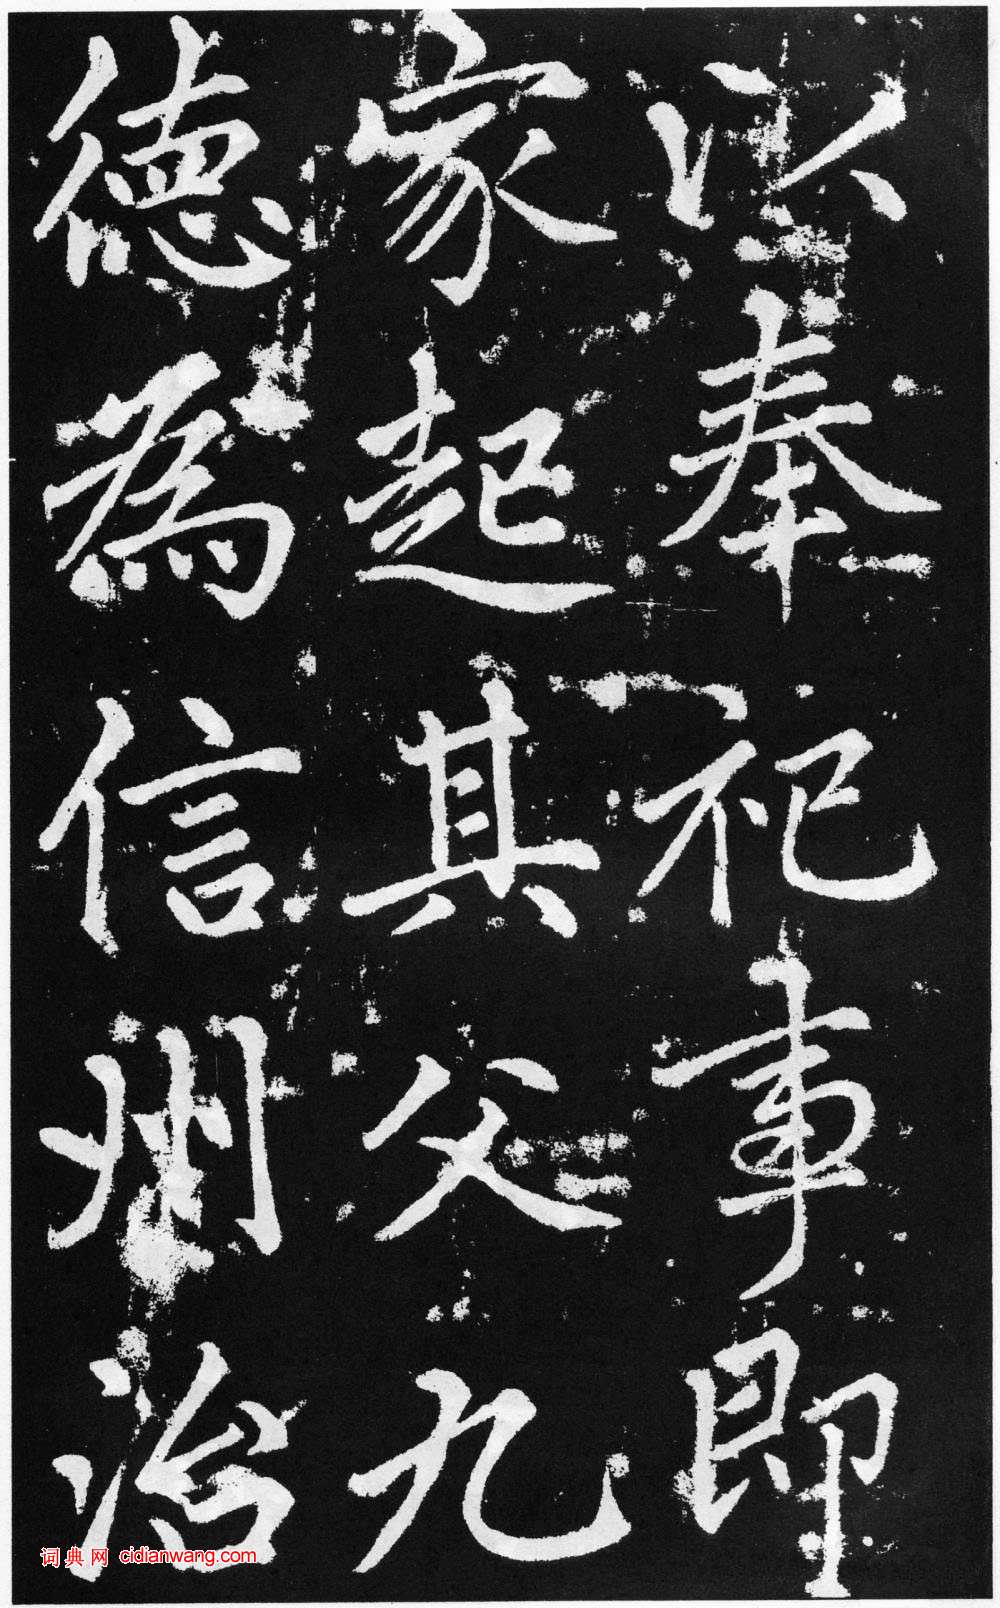 以奉祀事即
家起其父九
德為信州治
词典网 cidianwang.com